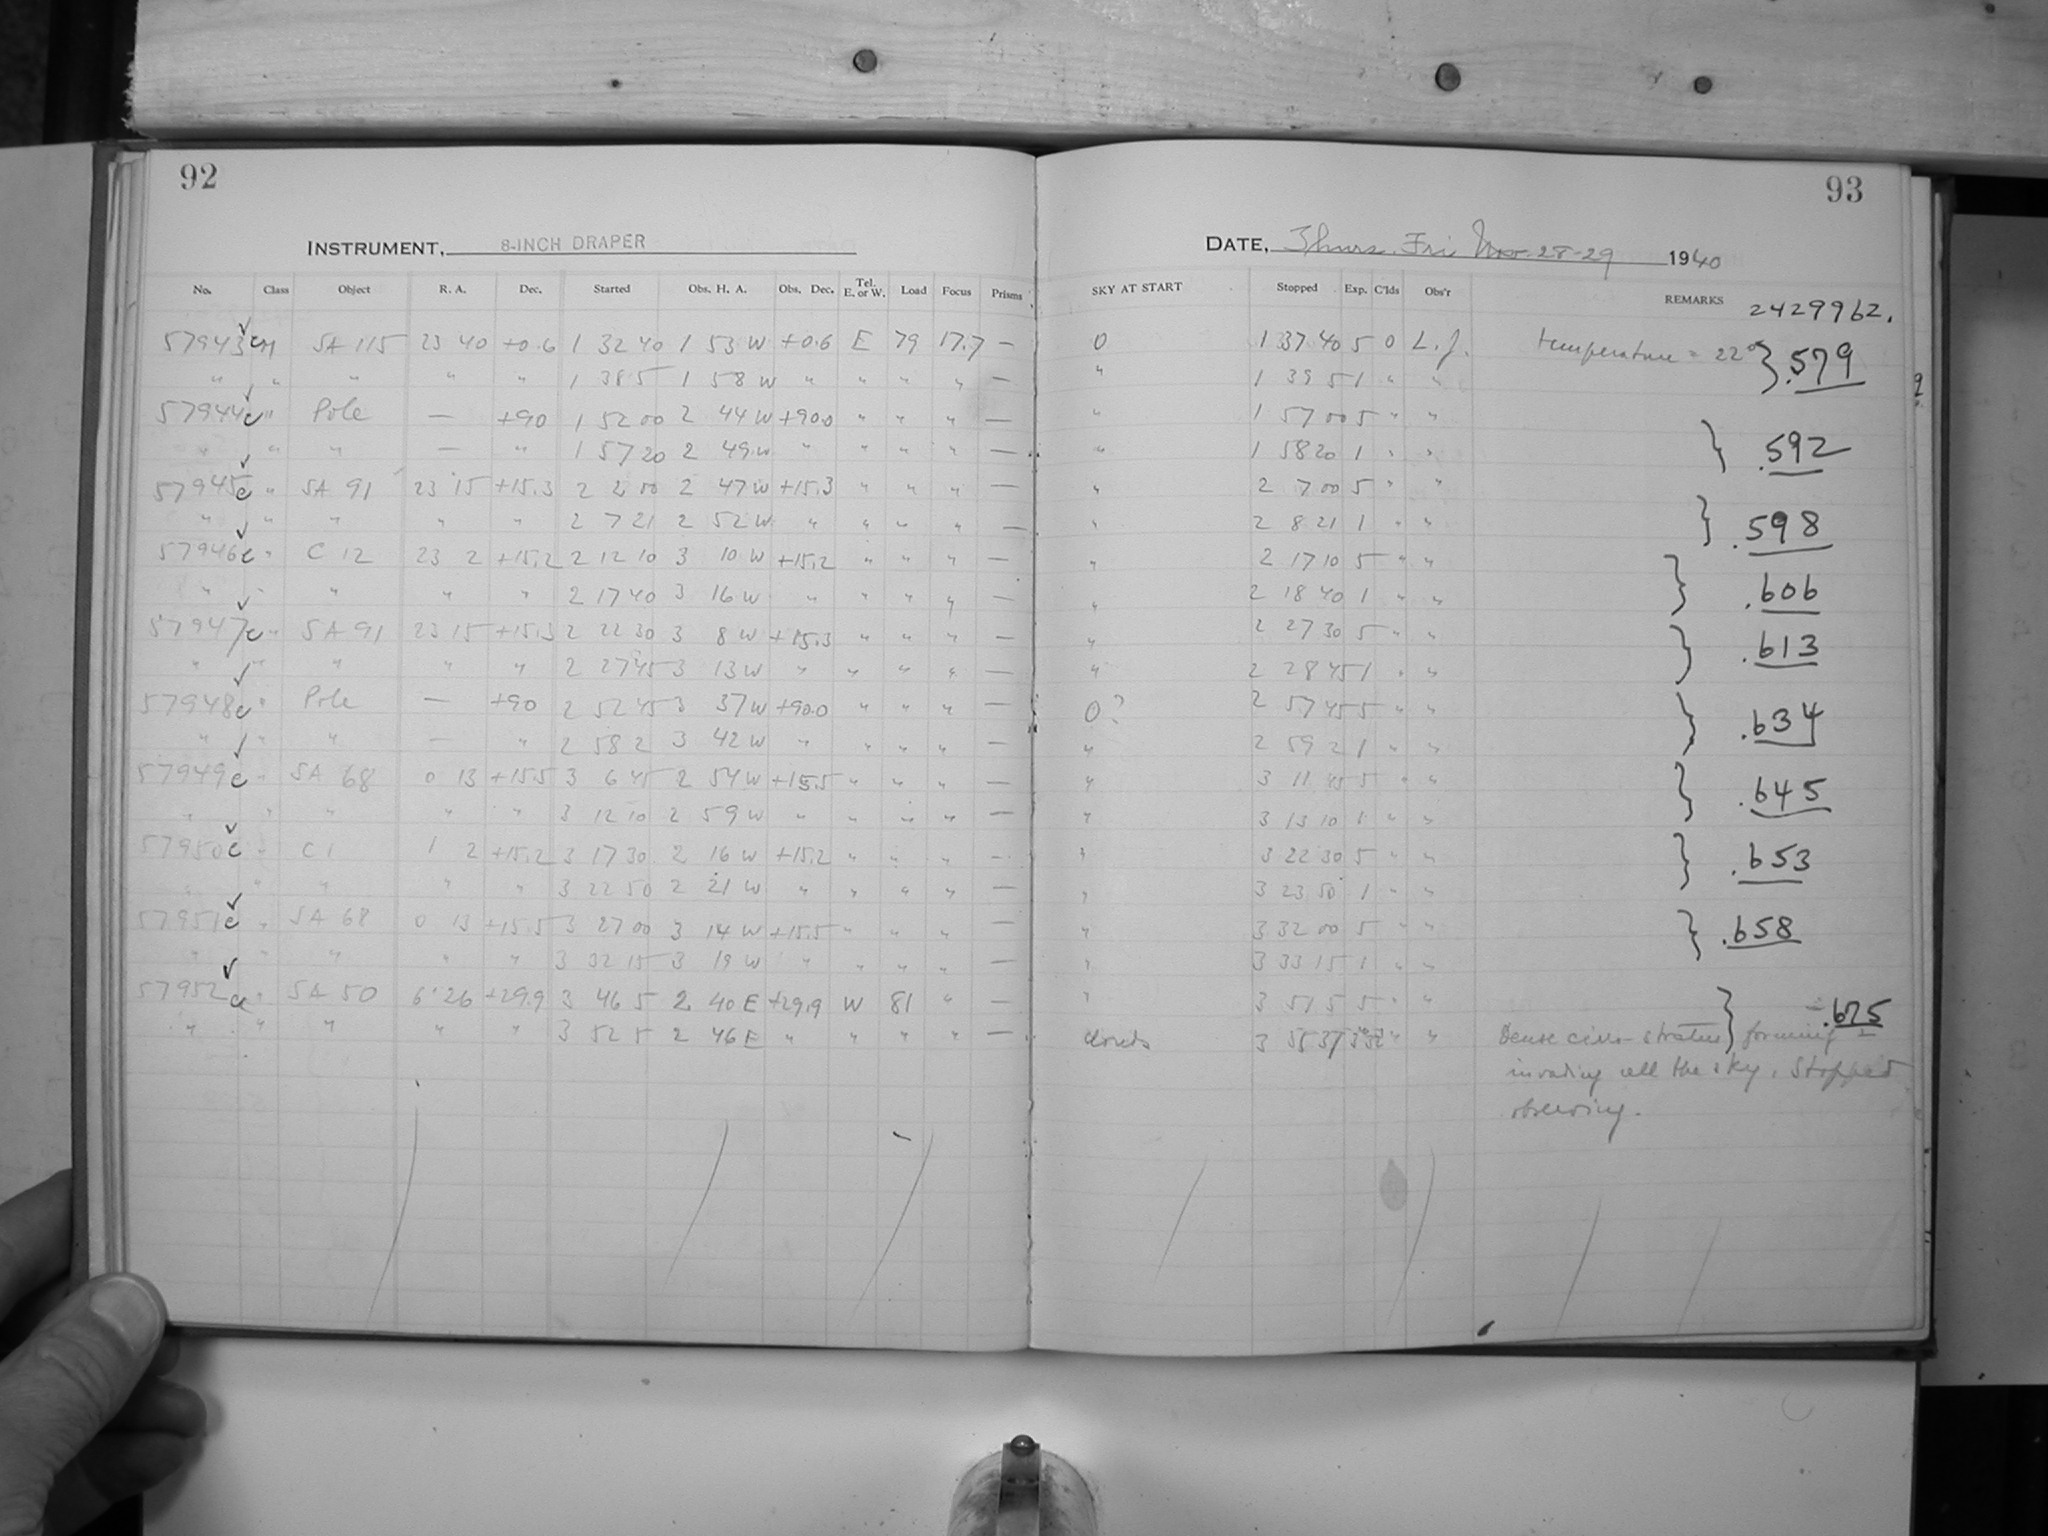 92
INSTRUMENT, 8-INCH DRAPER
No. Class Object R. A. Dec. Started Obs. H. A. Obs. Dec. Tel. E. or W. Load Focus Prisms
57943 c SA 115 23 40 +0.6 1 32 40 1 53 W +0.6 E 79 17.7 —
" " " " " 1 38 5 1 58 W " " " " —
57944 c " Pole — +90 1 52 00 2 44 W +90.0 " " " —
" " " — " 1 57 20 2 49 W " " " " —
57945 c " SA 91 23 15 +15.3 2 2 00 2 47 W +15.3 " " " —
" " " " " 2 7 21 2 52 W " " " " —
57946 c " C 12 23 2 +15.2 2 12 10 3 10 W +15.2 " " " —
" " " " " 2 17 40 3 16 W " " " " —
57947 c " SA 91 23 15 +15.3 2 22 30 3 8 W +15.3 " " " —
" " " " " 2 27 45 3 13 W " " " " —
57948 c " Pole — +90 2 52 45 3 37 W +90.0 " " " —
" " " — " 2 58 2 3 42 W " " " " —
57949 c " SA 68 0 13 +15.5 3 6 45 2 54 W +15.5 " " " —
" " " " " 3 12 10 2 59 W " " " " —
57950 c " C 1 1 2 +15.2 3 17 30 2 16 W +15.2 " " " —
" " " " " 3 22 50 2 21 W " " " " —
57951 c " SA 68 0 13 +15.5 3 27 00 3 14 W +15.5 " " " —
" " " " " 3 32 15 3 19 W " " " " —
57952 " SA 50 6 26 +29.9 3 46 5 2 40 E +29.9 W 81 " —
" " " " " 3 52 5 2 46 E " " " " —
93
DATE, Thurs. Fri Nov. 28-29 1940
SKY AT START Stopped Exp. C'lds Obs'r REMARKS 2429962.
0 1 37 40 5 0 L. J. temperature = 22° } .579
" 1 39 5 1 " "
" 1 57 00 5 " "
" 1 58 20 1 " " } .592
" 2 7 00 5 " "
" 2 8 21 1 " " } .598
" 2 17 10 5 " "
" 2 18 40 1 " " } .606
" 2 27 30 5 " "
" 2 28 45 1 " " } .613
0? 2 57 45 5 " "
" 2 59 2 1 " " } .634
" 3 11 45 5 " "
" 3 13 10 1 " " } .645
" 3 22 30 5 " "
" 3 23 50 1 " " } .653
" 3 32 00 5 " "
" 3 33 15 1 " " } .658
" 3 51 5 5 " " } .675
clouds 3 55 37 " " Dense cirro-stratus forming
invading all the sky. Stopped
observing.